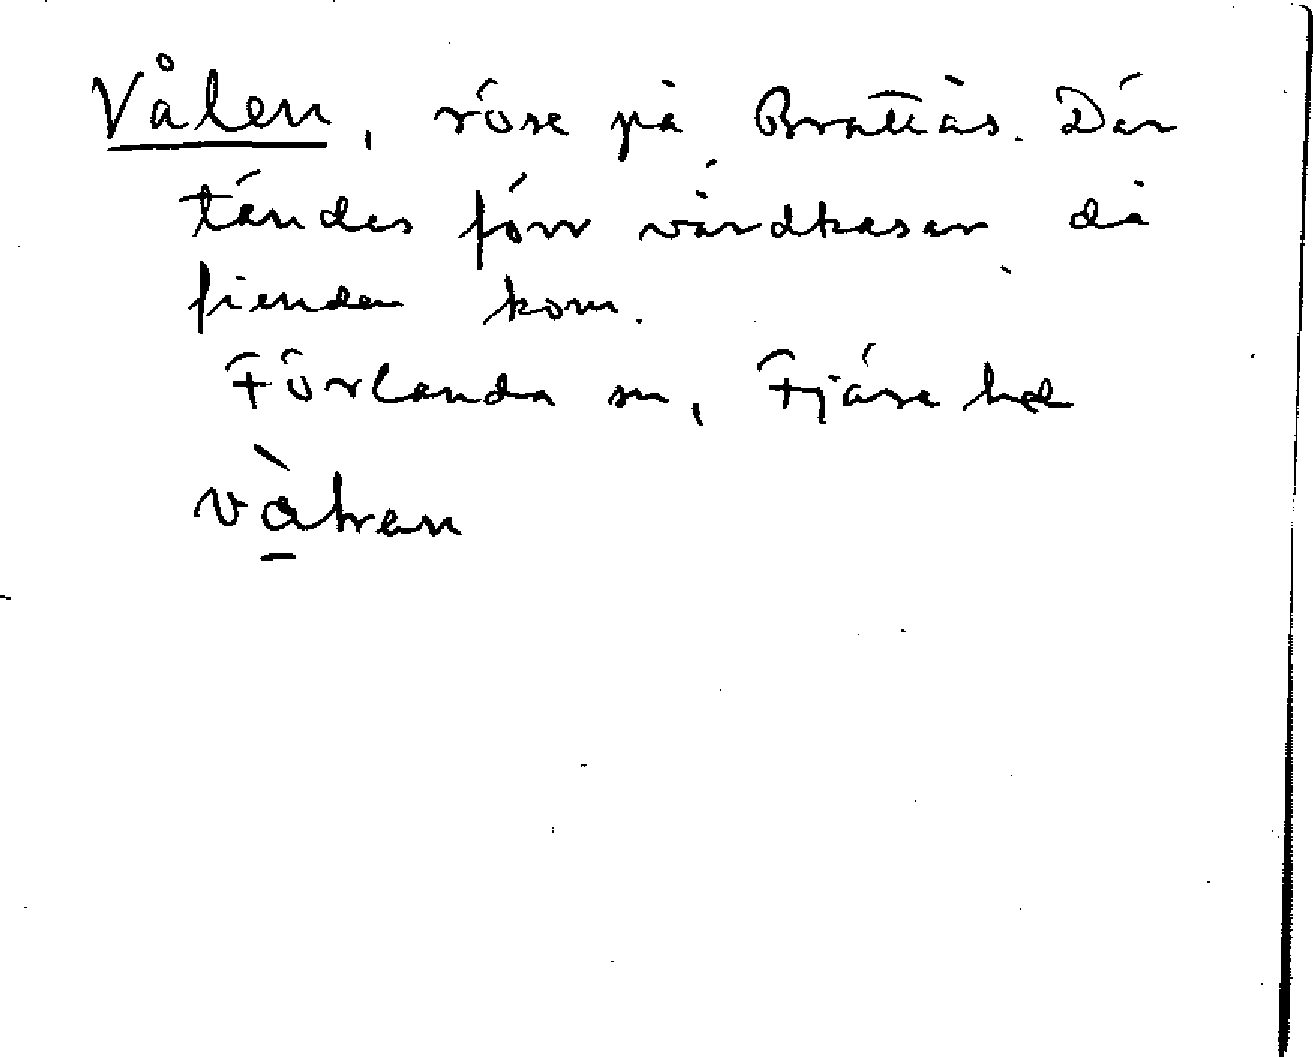 Vålen, röse på Brattås. Där
tändes förr vårdkasar då
fienden kom.
Förlanda sn, Fjäre hd